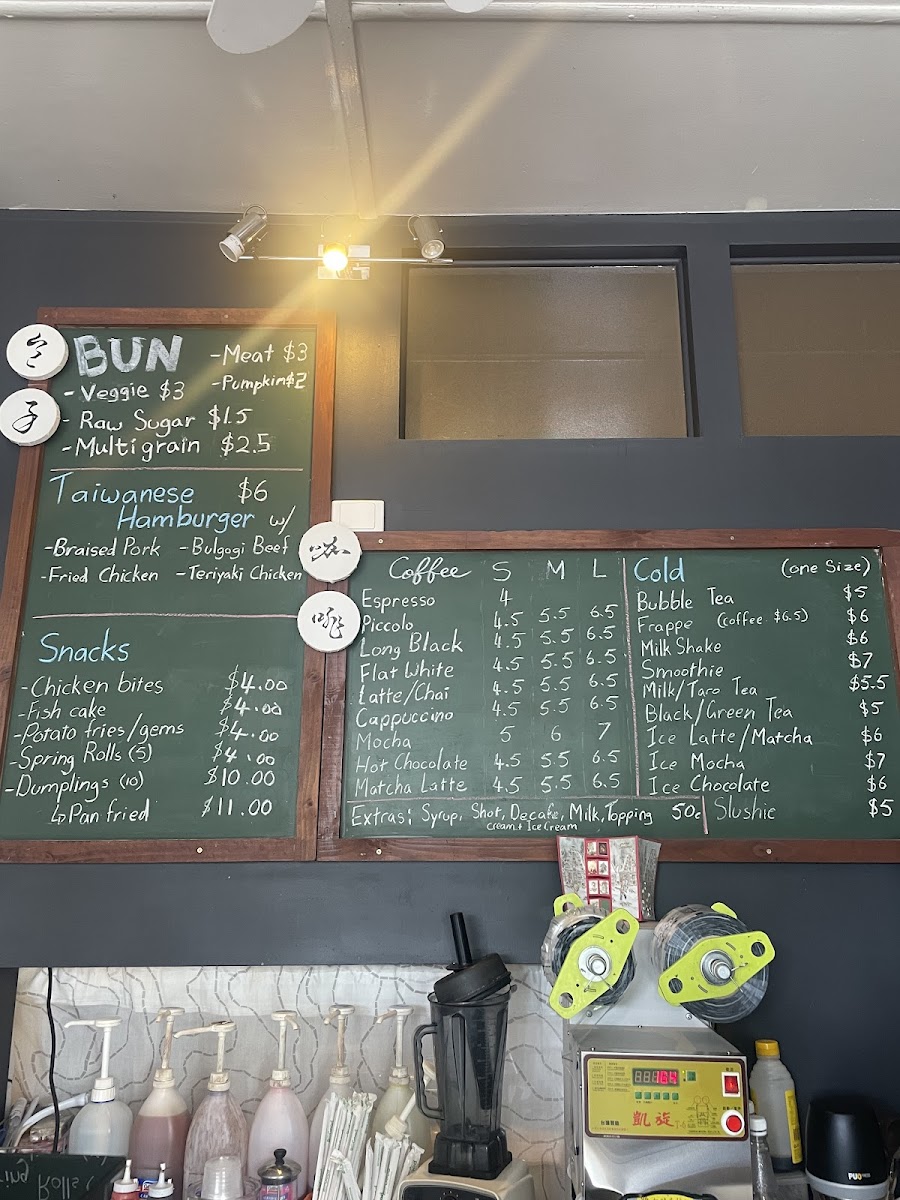 包子
BUN -Meat $3
- Veggie $3 -Pumpkin $2
- Raw Sugar $1.5
- Multigrain $2.5
Taiwanese $6
Hamburger w/
-Braised Pork -Bulgogi Beef
-Fried Chicken -Teriyaki Chicken
Snacks
-Chicken bites $4.00
-Fish cake $4.00
-Potato fries/gems $4.00
-Spring Rolls (5) $4.00
-Dumplings (10) $10.00
↳Pan fried $11.00
咖啡
Coffee S M L
Espresso 4
Piccolo 4.5 5.5 6.5
Long Black 4.5 5.5 6.5
Flat White 4.5 5.5 6.5
Latte/Chai 4.5 5.5 6.5
Cappuccino 4.5 5.5 6.5
Mocha 5 6 7
Hot Chocolate 4.5 5.5 6.5
Matcha Latte 4.5 5.5 6.5
Extras; Syrup, Shot, Decafe, Milk, Topping 50c
cream + Ice Cream
Cold (one Size)
Bubble Tea $5
Frappe (coffee $6.5) $6
Milk Shake $6
Smoothie $7
Milk/Taro Tea $5.5
Black/Green Tea $5
Ice Latte/Matcha $6
Ice Mocha $7
Ice Chocolate $6
Slushie $5
凱旋